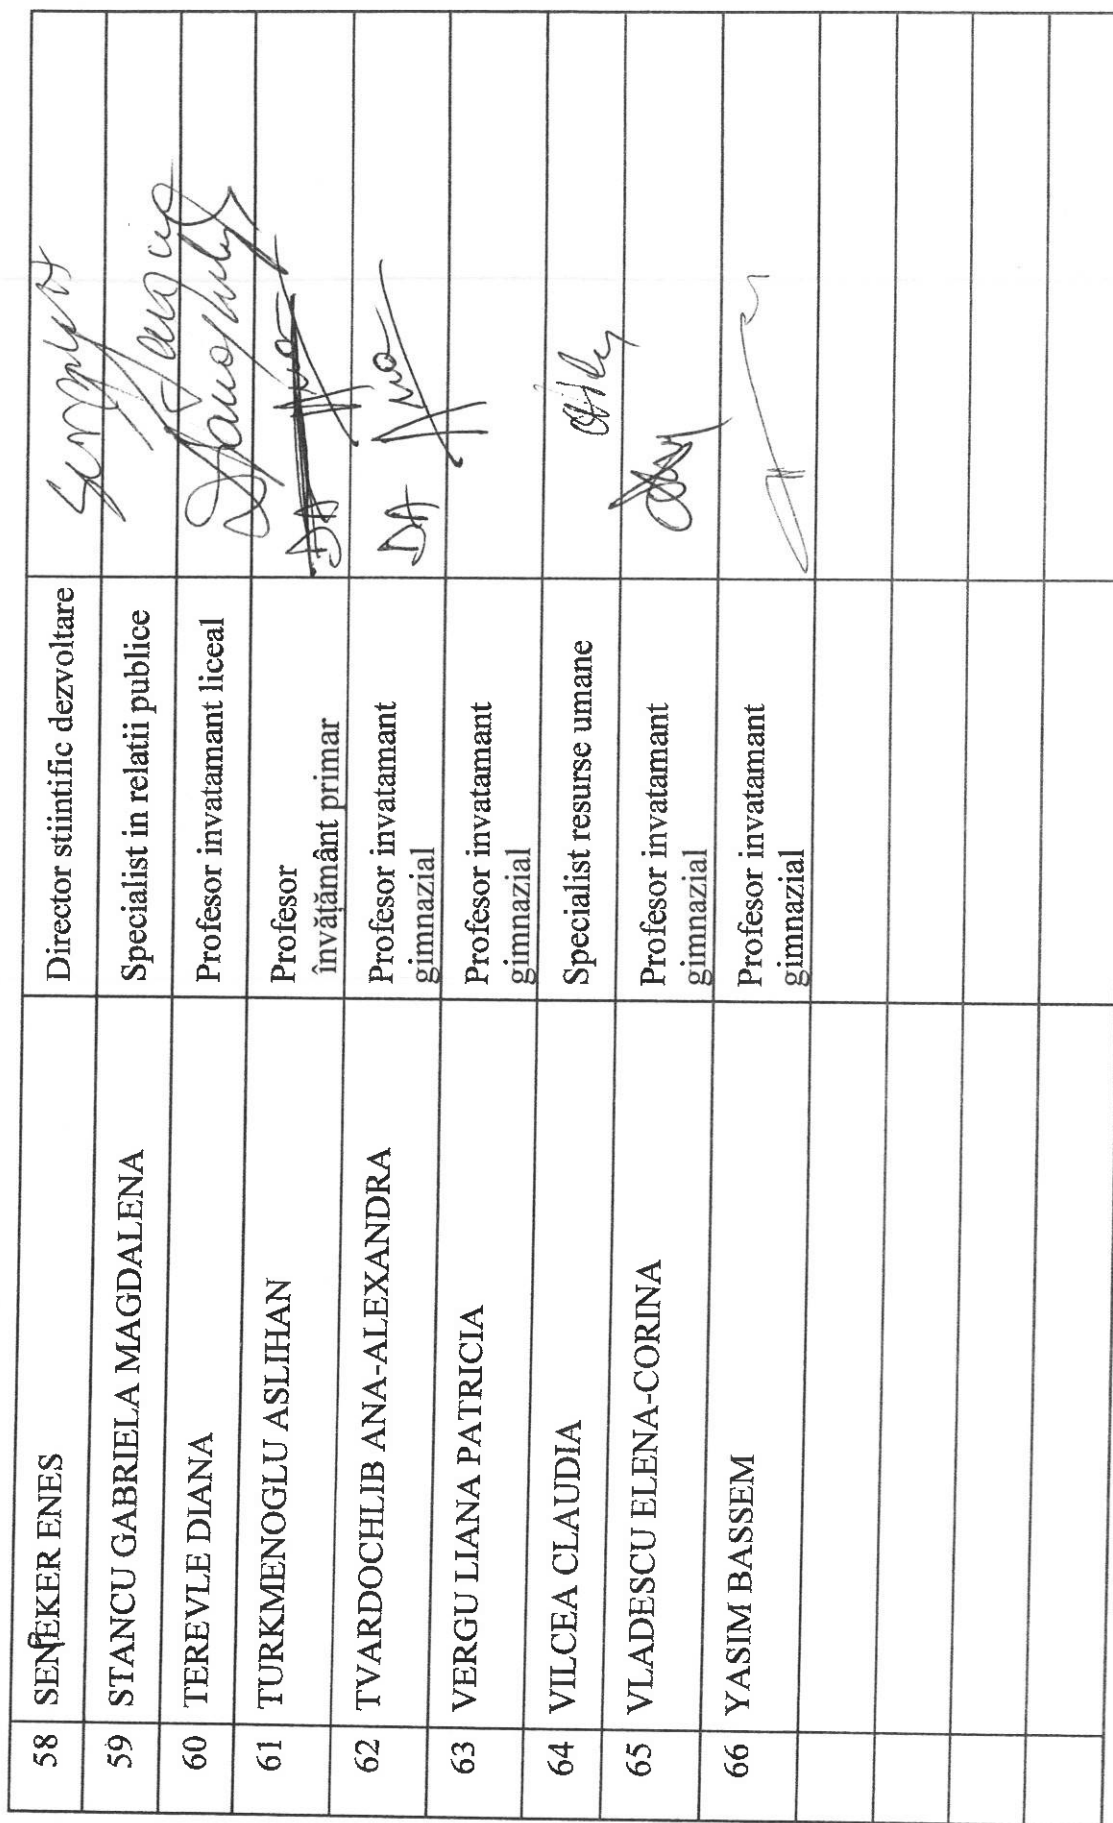 58 SENEKER ENES Director stiintific dezvoltare
59 STANCU GABRIELA MAGDALENA Specialist in relatii publice
60 TEREVLE DIANA Profesor invatamant liceal
61 TURKMENOGLU ASLIHAN Profesor
învățământ primar
DA
62 TVARDOCHLIB ANA-ALEXANDRA Profesor invatamant
gimnazial
DA
63 VERGU LIANA PATRICIA Profesor invatamant
gimnazial
64 VILCEA CLAUDIA Specialist resurse umane
65 VLADESCU ELENA-CORINA Profesor invatamant
gimnazial
66 YASIM BASSEM Profesor invatamant
gimnazial